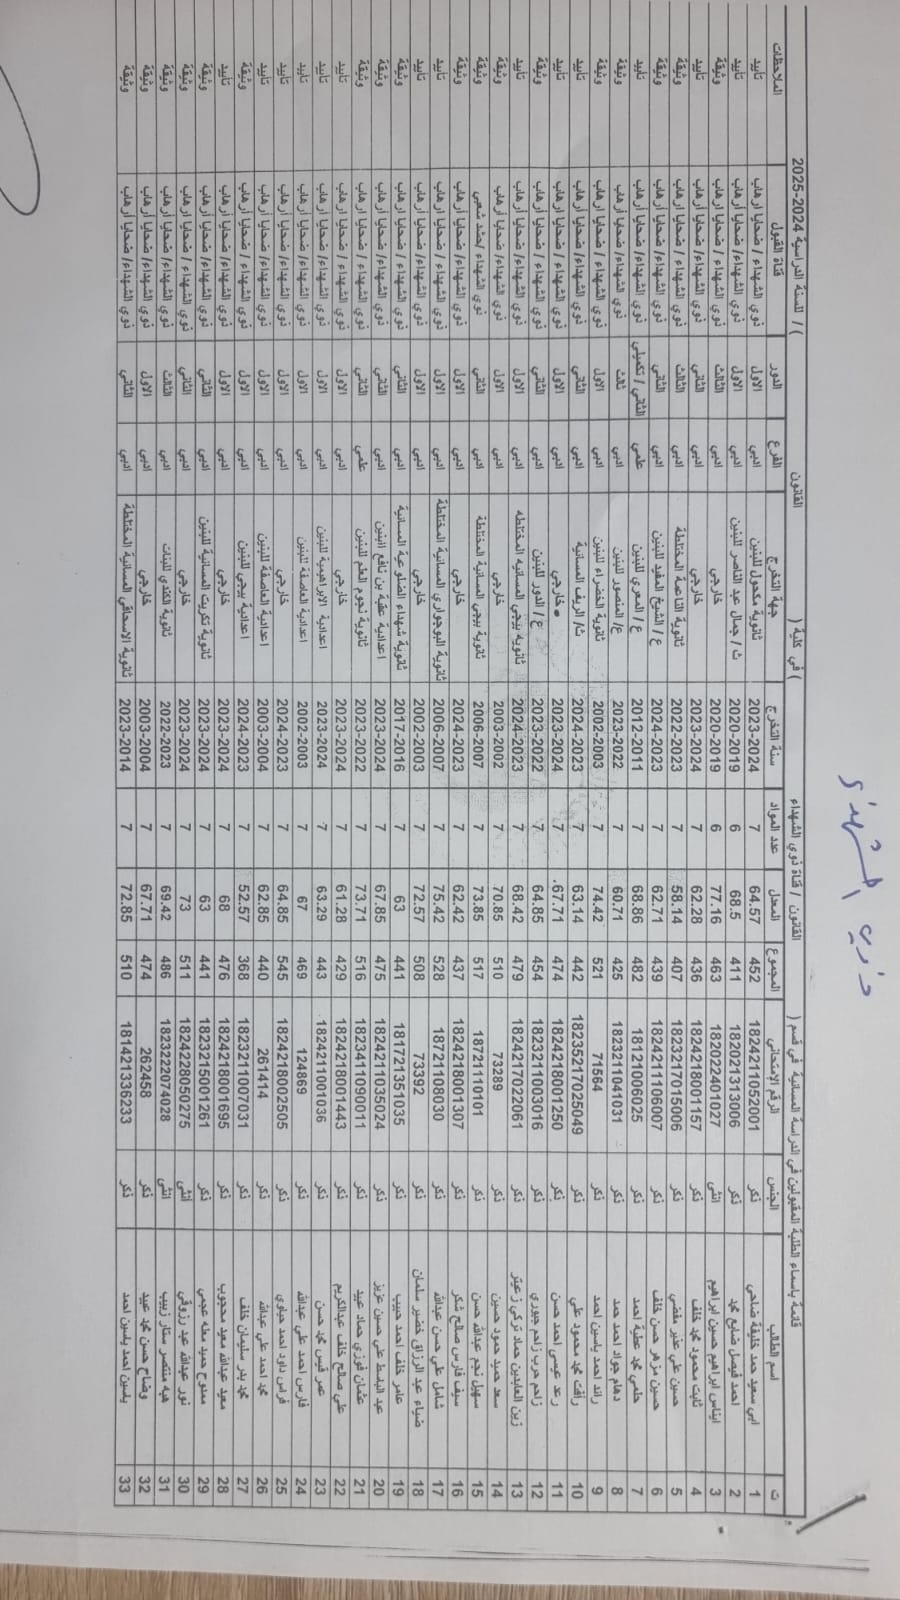 ذوي الشهداء
قائمة باسماء الطلبة المقبولين في الدراسة المسائية في قسم ( القانون / قناة ذوي الشهداء ) في كلية ( القانون ) / للسنة الدراسية 2024-2025
ت اسم الطالب الجنس الرقم الامتحاني المجموع المعدل عدد المواد سنة التخرج جهة التخرج الفرع الدور قناة القبول الملاحظات
1 ابي سعيد حمد خليفة ضاحي ذكر 182421052001 452 64.57 7 2023-2024 ثانوية مكحول للبنين ادبي الاول ذوي الشهداء / ضحايا ارهاب تاييد
2 احمد فيصل ضايع محمد ذكر 182021313006 411 68.5 6 2020-2019 ث / جمال عبد الناصر للبنين ادبي الاول ذوي الشهداء/ ضحايا ارهاب تاييد
3 ايناس ابراهيم حسين ابراهيم انثى 182022401027 463 77.16 6 2020-2019 خارجي ادبي الثالث ذوي الشهداء / ضحايا ارهاب وثيقة
4 ثابت محمود محمد خلف ذكر 182421800157 436 62.28 7 2023-2024 خارجي ادبي الثاني ذوي الشهداء/ ضحايا ارهاب تاييد
5 حسين علي ذكر 1823217015006 407 58.14 7 2022-2023 ثانوية القاعة المختلطة ادبي الثالث ذوي الشهداء / ضحايا ارهاب وثيقة
6 حسين مزهر حسن خلف ذكر 182421106007 439 62.71 7 2024-2023 ع / الشيخ المفيد للبنين ادبي الثاني ذوي الشهداء/ ضحايا ارهاب وثيقة
7 حلمي محمد عطية احمد ذكر 181211006025 482 68.86 7 2012-2011 ع / المعري للبنين علمي الثاني / تكميلي ذوي الشهداء / ضحايا ارهاب تاييد
8 دهام جواد احمد حمد ذكر 182321041031 425 60.71 7 2023-2022 ع/ المنصور للبنين ادبي ثالث ذوي الشهداء/ ضحايا ارهاب وثيقة
9 رائد احمد ياسين احمد ذكر 71564 521 74.42 7 2002-2003 ثانوية الخضراء للبنين ادبي الاول ذوي الشهداء / ضحايا ارهاب وثيقة
10 رافت محمد محمود علي ذكر 18235217025049 442 63.14 7 2024-2023 ث/ الريف المسائية ادبي الثاني ذوي الشهداء/ ضحايا ارهاب تاييد
11 رعد عيسى احمد حسن ذكر 1824218001250 474 67.71 7 2023-2024 خارجي ادبي الاول ذوي الشهداء / ضحايا ارهاب تاييد
12 زاحم حرب زاحم جبوري ذكر 182321003016 454 64.85 7 2023-2022 ع / الدور للبنين ادبي الثاني ذوي الشهداء / ضحايا ارهاب وثيقة
13 زين العابدين حماد تركي زعيتر ذكر 182421702206​1 479 68.42 7 2024-2023 ثانوية بيجي المسائية المختلطة ادبي الاول ذوي الشهداء/ ضحايا ارهاب تاييد
14 سعد حميد حمود حسين ذكر 73289 510 70.85 7 2003-2002 خارجي ادبي الاول ذوي الشهداء/ ضحايا ارهاب وثيقة
15 نجم عبدالله حسن ذكر 18721110101 517 73.85 7 2006-2007 ثانوية بيجي المسائية المختلطة ادبي الثاني ذوي الشهداء /حشد شعبي وثيقة
16 سيف فارس صالح شكر ذكر 182421800​1307 437 62.42 7 2024-2023 خارجي ادبي الاول ذوي الشهداء/ ضحايا ارهاب وثيقة
17 شامل علي حسن عبدالله ذكر 18721108030 528 75.42 7 2006-2007 ثانوية البوجواري المسائية المختلطة ادبي الاول ذوي الشهداء / ضحايا ارهاب تاييد
18 ضياء عبد الرزاق خضير سلمان ذكر 73392 508 72.57 7 2002-2003 خارجي ادبي الاول ذوي الشهداء/ ضحايا ارهاب تاييد
19 عامر خلف احمد حبيب ذكر 181721351035 441 63 7 2017-2016 ثانوية شهداء الضلوعية المسائية ادبي الثاني ذوي الشهداء / ضحايا ارهاب وثيقة
20 عبد الباسط علي حسين عزيز ذكر 182421035024 475 67.85 7 2023-2024 اعدادية عقبة بن نافع للبنين ادبي الثاني ذوي الشهداء/ ضحايا ارهاب وثيقة
21 عثمان فوزي حماد عبيد ذكر 182341109001​1 516 73.71 7 2023-2022 ثانوية نجوم العلم للبنين علمي الثاني ذوي الشهداء/ ضحايا ارهاب وثيقة
22 علي صالح خلف عبدالكريم ذكر 182421800​1443 429 61.28 7 2023-2024 خارجي ادبي الاول ذوي الشهداء / ضحايا ارهاب تاييد
23 عمر قيس محمد حسن ذكر 182421100​1036 443 63.29 7 2023-2024 اعدادية الابراهيمية للبنين ادبي الاول ذوي الشهداء/ ضحايا ارهاب تاييد
24 فارس احمد علي عبدالله ذكر 124869 469 67 7 2002-2003 اعدادية العاصفة للبنين ادبي الاول ذوي الشهداء / ضحايا ارهاب وثيقة
25 فراس داود احمد ذكر 182421800​2505 545 64.85 7 2024-2023 خارجي ادبي الاول ذوي الشهداء/ ضحايا ارهاب تاييد
26 محمد احمد علي عبدالله ذكر 261414 440 62.85 7 2003-2004 اعدادية العاصفة للبنين ادبي الاول ذوي الشهداء / ضحايا ارهاب تاييد
27 محمد بدر سليمان خلف ذكر 182321100​7031 368 52.57 7 2024-2023 اعدادية بيجي للبنين ادبي الاول ذوي الشهداء/ ضحايا ارهاب وثيقة
28 معيد عبدالله معيد محجوب ذكر 182421800​1695 476 68 7 2023-2024 خارجي ادبي الاول ذوي الشهداء/ ضحايا ارهاب تاييد
29 ممدوح حميد ذكر 182321500​1261 441 63 7 2023-2024 ثانوية تكريت المسائية للبنين ادبي الثاني ذوي الشهداء/ ضحايا ارهاب وثيقة
30 نور عبدالله عبد رزوقي انثى 182422805​0275 511 73 7 2023-2024 خارجي ادبي الثاني ذوي الشهداء / ضحايا ارهاب وثيقة
31 هبه منتصر ستار انثى 182322207​4028 486 69.42 7 2022-2023 ثانوية الكندي للبنات ادبي الثالث ذوي الشهداء/ ضحايا ارهاب وثيقة
32 وضاح حسن محمد عبيد ذكر 262458 474 67.71 7 2003-2004 خارجي ادبي الاول ذوي الشهداء/ ضحايا ارهاب وثيقة
33 ياسين احمد ياسين احمد ذكر 181421336233 510 72.85 7 2023-2014 ثانوية الاسحاقي المسائية المختلطة ادبي الثاني ذوي الشهداء/ ضحايا ارهاب وثيقة